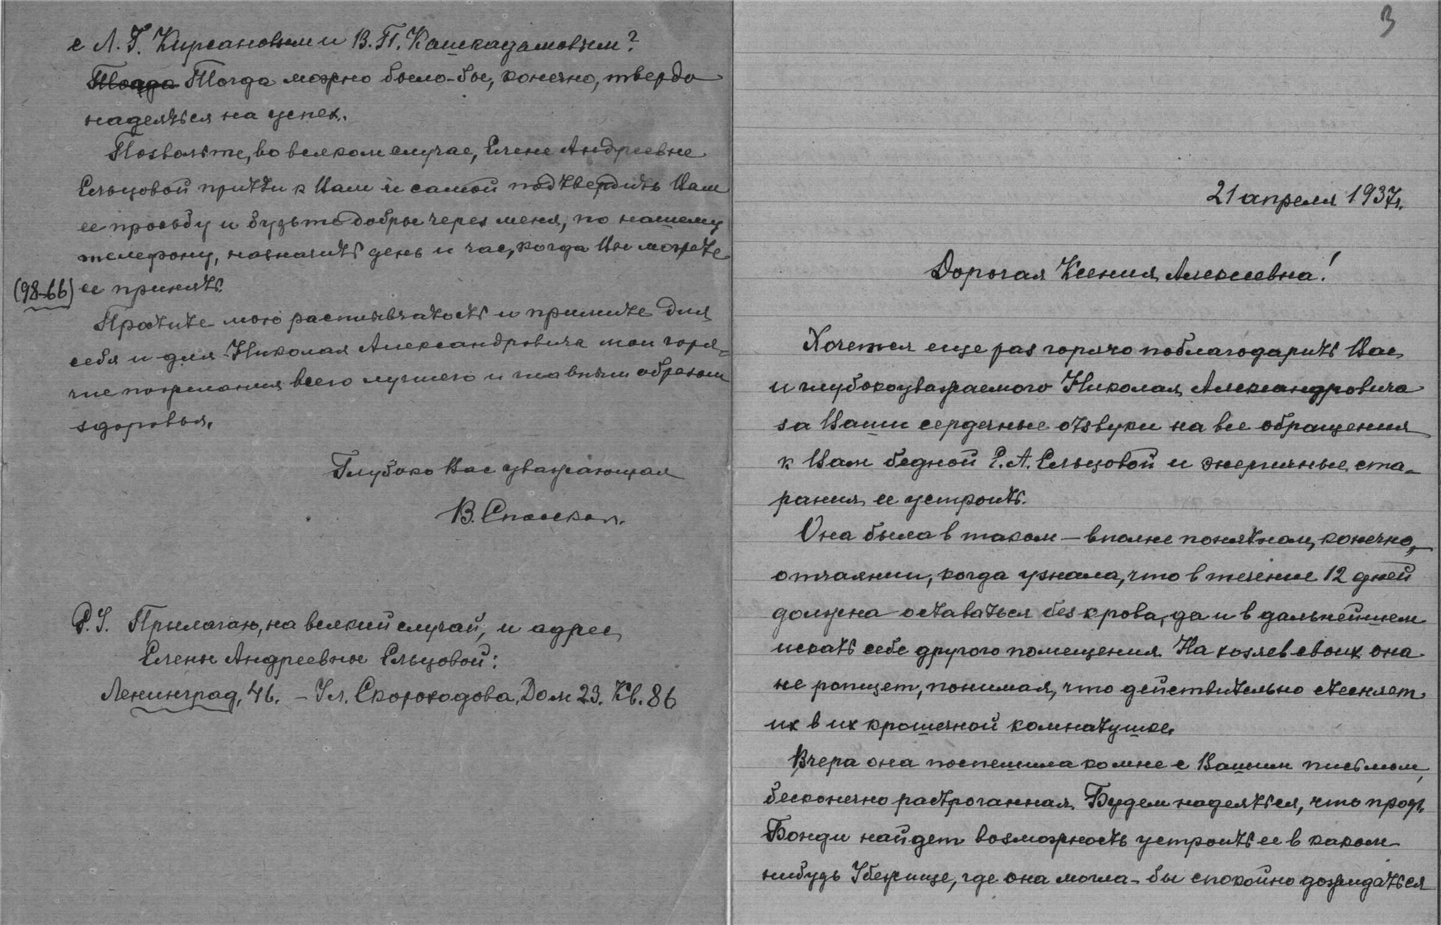 с Л. Г. Кирсановым и В. П. Кашкадамовым?
Тогда Тогда можно было-бы, конечно, твердо
надеяться на успех.
Позвольте, во всяком случае, Елене Андреевне
Ельцовой притти к Вам и самой подтвердить Вам
ее просьбу и будьте добры через меня, по нашему
телефону, назначить день и час, когда Вы можете
(98-66) ее принять.
Простите мою расплывчатость и примите для
себя и для Николая Александровича мои горя-
чие пожелания всего лучшего и главным образом
здоровья.
Глубоко Вас уважающая
В. Спасская.
P.S. Прилагаю, на всякий случай, и адрес
Елены Андреевны Ельцовой:
Ленинград, 46. – Ул. Скороходова, Дом 23. Кв. 86
3
21 апреля 1937г.
Дорогая Ксения Алексеевна!
Хочется еще раз горячо поблагодарить Вас
и глубокоуважаемого Николая Александровича
за Ваши сердечные отзвуки на все обращения
к Вам бедной Е. А. Ельцовой и энергичные ста-
рания ее устроить.
Она была в таком – вполне понятном, конечно, –
отчаянии, когда узнала, что в течение 12 дней
должна оставаться без крова, да и в дальнейшем
искать себе другого помещения. На хозяев своих она
не ропщет, понимая, что действительно стесняет
их в их крошечной комнатушке.
Вчера она поспешила ко мне с Вашим письмом,
бесконечно растроганная. Будем надеяться, что проф.
Бонди найдет возможность устроить ее в каком
нибудь Убежище, где она могла-бы спокойно дожидаться